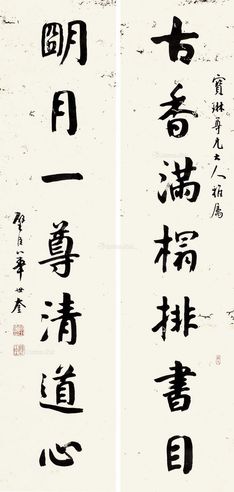 寶琳尊兄大人雅屬
古香滿榻排書目
朙月一尊清道心
璧臣華世奎